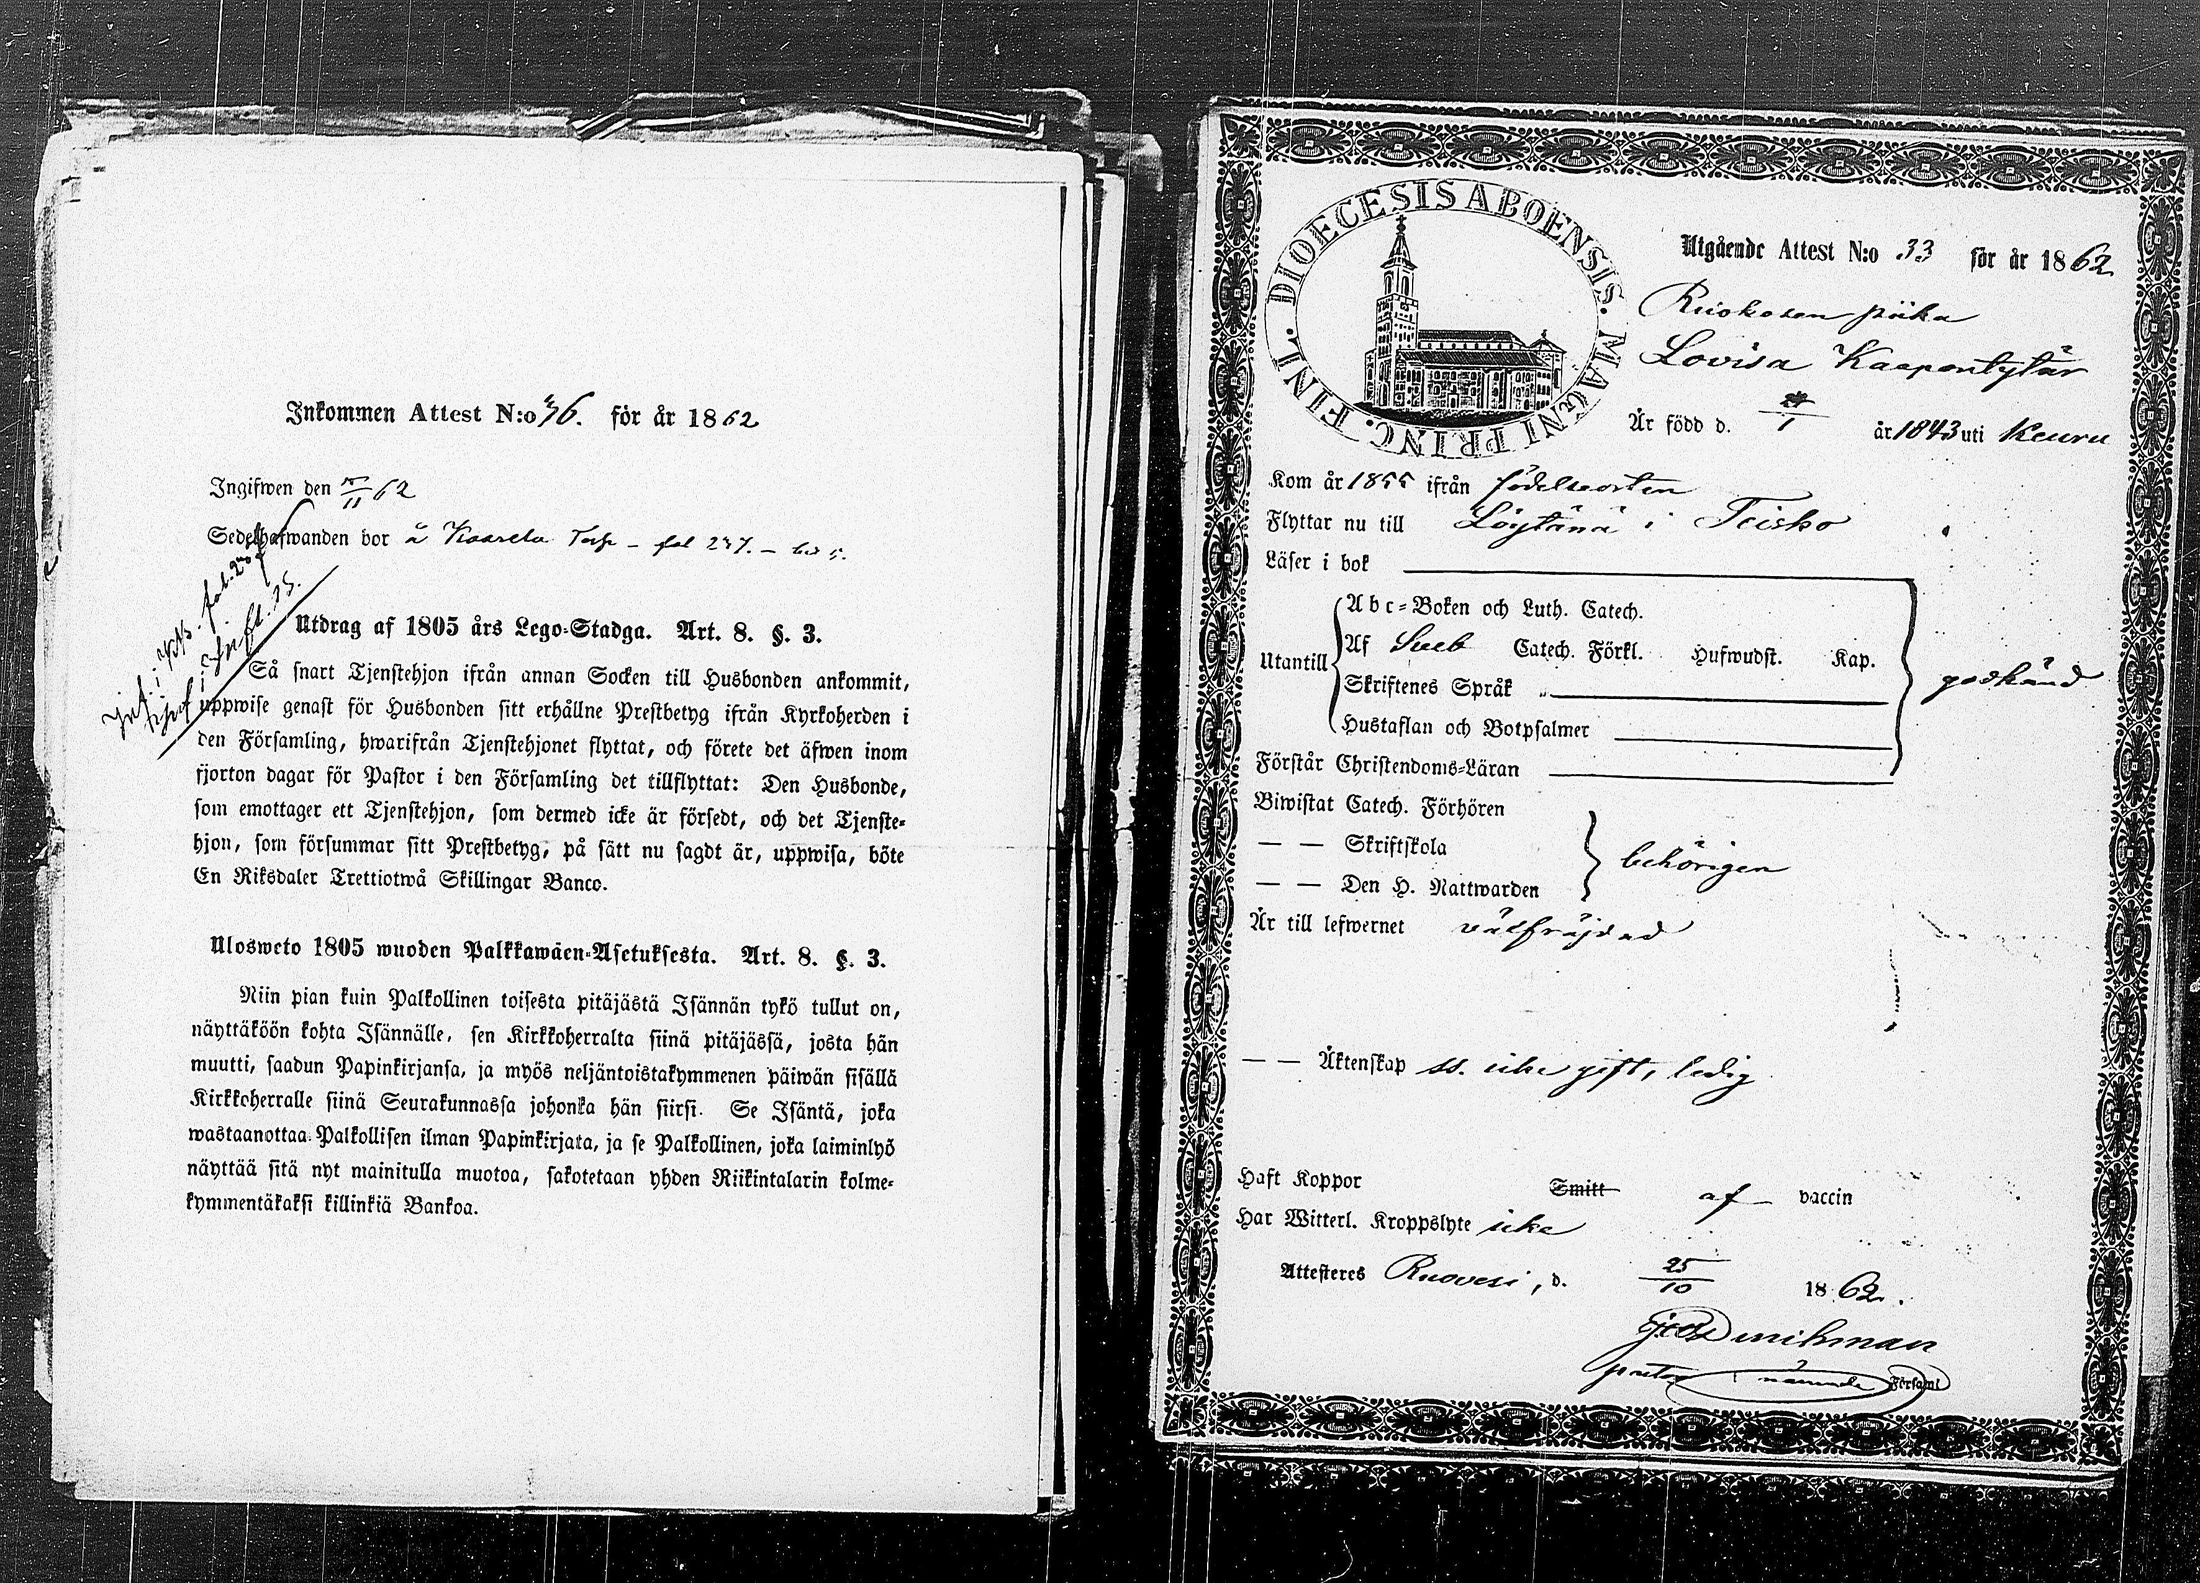 Inkommen Attest N:o 76. för år 1862
Ingifwen den /11 62
Sedelhafwanden bor å Kaarela Torp - fol 237. -
Utdrag af 1805 års Lego-Stadga. Art. 8. §. 3.
Så snart Tjenstehjon ifrån annan Socken till Husbonden ankommit,
uppwise genast för Husbonden sitt erhållne Prestbetyg ifrån Kyrkoherden i
den Församling, hwarifrån Tjenstehjonet flyttat, och förete det äfwen inom
fjorton dagar för Pastor i den Församling det tillflyttat: Den Husbonde,
som emottager ett Tjenstehjon, som dermed icke är försedt, och det Tjenste-
hjon, som försummar sitt Prestbetyg, på sätt nu sagdt är, uppwisa, böte
En Riksdaler Trettiotwå Skillingar Banco.
Ulosweto 1805 wuoden Palkkawäen-Asetuksesta. Art. 8. §. 3.
Niin pian kuin Palkollinen toisesta pitäjästä Isännän tykö tullut on,
näyttäköön kohta Isännälle, sen Kirkkoherralta siinä pitäjässä, josta hän
muutti, saadun Papinkirjansa, ja myös neljäntoistakymmenen päiwän sisällä
Kirkkoherralle siinä Seurakunnassa johonka hän siirsi. Se Isäntä, joka
wastaanottaa Palkollisen ilman Papinkirjata, ja se Palkollinen, joka laiminlyö
näyttää sitä nyt mainitulla muotoa, sakotetaan yhden Riikintalarin kolme-
kymmentäkaksi killinkiä Bankoa.
DIOECESIS ABOENSIS. MAGNI PRINC. FINL.
Utgående Attest N:o 33 för år 1862
Ruokosen piika
Lovisa Kaapontytär
Är född d. /1 år 1843 uti Keuru
Kom år 1855 ifrån födelseorten
Flyttar nu till Löytänä i Teisko
Läser i bok
Abc-Boken och Luth. Catech.
Utantill Af Sveb Catech. Förkl. Hufwudst. Kap.
godkänd
Skriftenes Språk
Hustaflan och Botpsalmer
Förstår Christendoms-Läran
Biwistat Catech. Förhören
— — Skriftskola
behörigen
— — Den H. Nattwarden
Är till lefwernet välfräjdad
— — Äktenskap ss. icke gift, ledig
Haft Koppor Smitt af vaccin
Har Witterl. Kroppslyte icke
Attesteres Ruovesi, d. 25/10 1862.
nämnde Församl